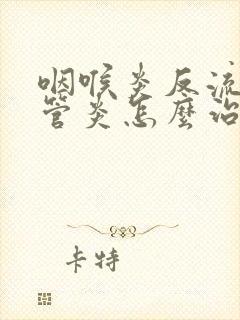 咽喉炎反流
管炎怎麼治
卡特